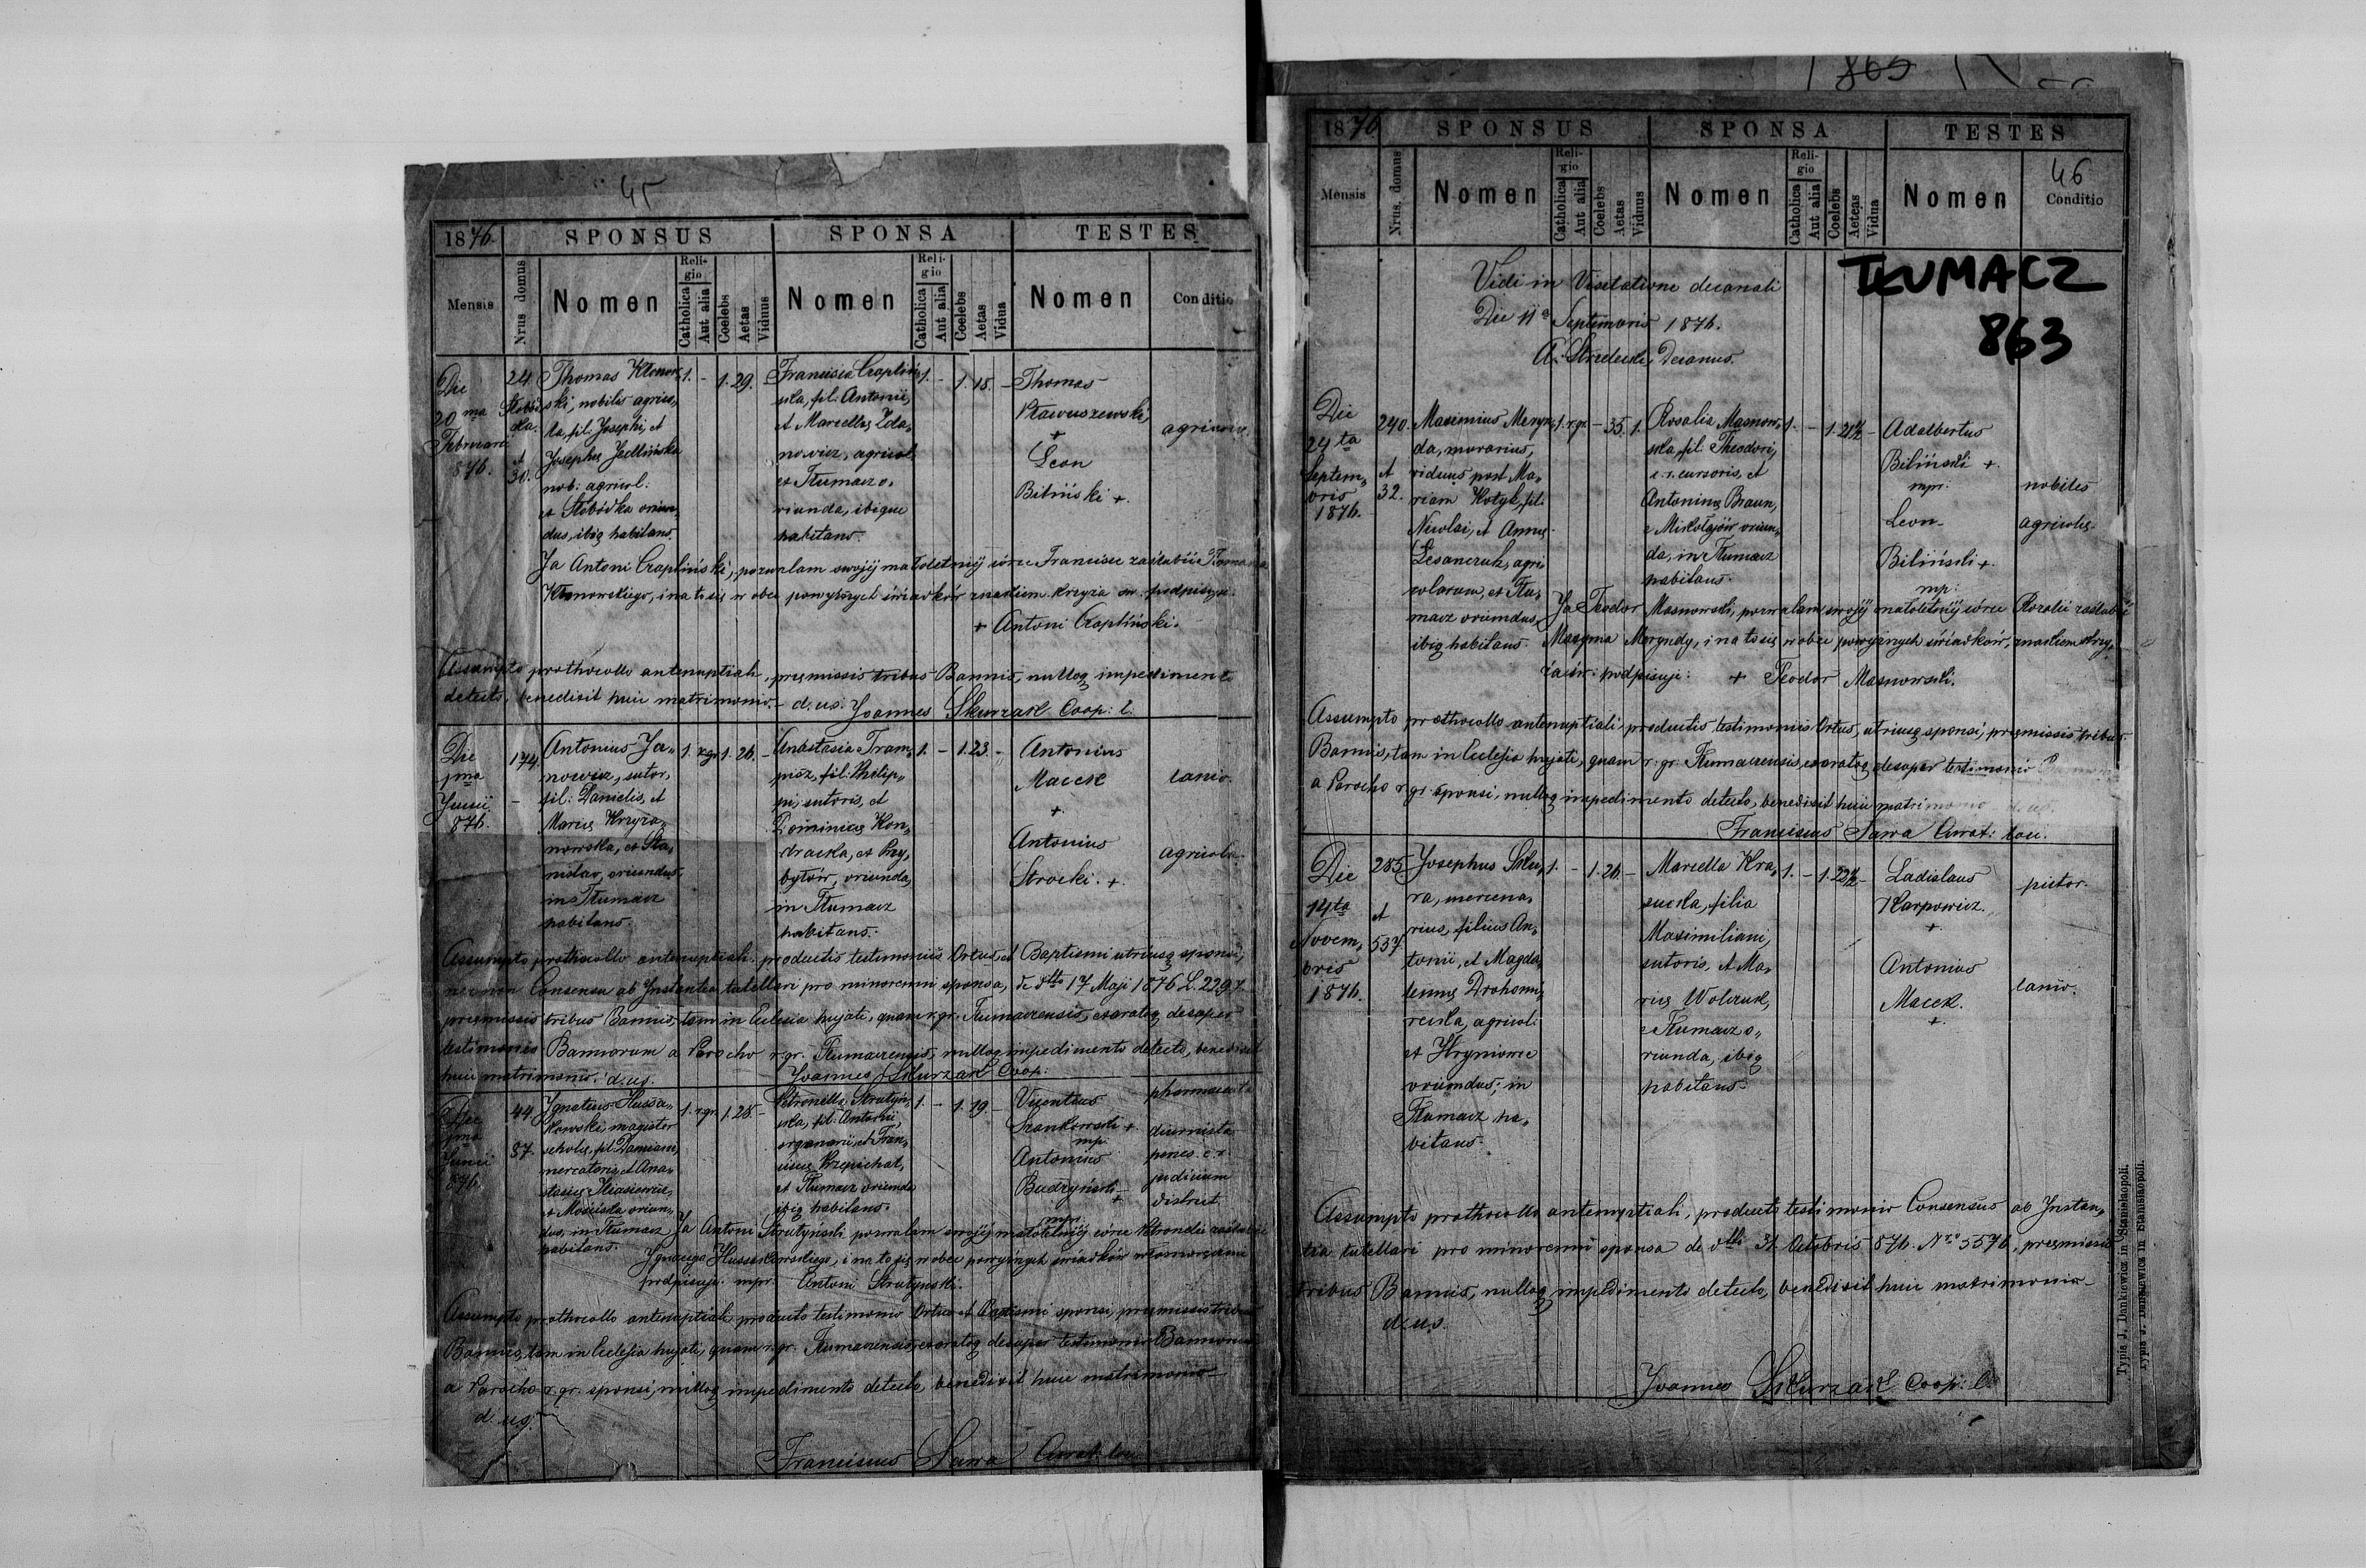 45
1876
SPONSUS
SPONSA
TESTES
Mensis
Nrus domus
Nomen
Religio
Catholica
Aut alia
Coelebs
Aetas
Viduus
Nomen
Religio
Catholica
Aut alia
Coelebs
Aetas
Vidua
Nomen
Conditio
Die
20ma
Februarii
876.
24.
Słobód
ka.
et
30.
Thomas Klonow„
ski, nobilis agrico„
la, fil: Josephi, et
Josephę Jedlińska
nob: agricol:
et Słobódka oriun„
dus, ibiq habitans.
1. - 1. 29.
Francisca Czapliń„
ska, fil: Antonii,
et Marcellę Zda„
nowicz, agricol:
et Tłumacz o„
riunda, ibique
habitans.
1. - 1. 18. -
Thomas
+
Leon
Biliński +.
agricolę.
Ja Antoni Czapliński, pozwalam swojéj małoletniéj córce Francisce zaślubić Tomasza
Klonowskiego, i na to się w obec powyższych świadków znakiem krzyża św. podpisuję.
+ Antoni Czapliński.
Assumpto prothocollo antenuptiali, pręmissis tribus Bannis, nulloq impedimento
detecto, benedixit huic matrimonio. - d. us. Joannes Skurzak Coop: l.
Die
1ma
Junii
876.
174.
-
Antonius Ja„
nowicz, sutor,
fil: Danielis, et
Marię Krzyża„
nowska, et Sta„
nislav, oriundus,
in Tłumacz
habitans.
1. r.gr. 1. 26. -
Anastasia Tram„
pisz, fil: Philip„
pi, sutoris, et
Dominicę Kon„
dracka, et Przy„
bytów, oriunda,
in Tłumacz
habitans.
1. - 1. 23. -
Antonius
Macek
+
Antonius
Strocki. +.
lanio.
agricola.
Assumpto prothocollo antenuptiali, productis testimoniis Ortus, et Baptismi utriusq sponsi,
necnon Consensu ab Instantia tutellari pro minorenni sponsa, de dtto 17 Maji 1876 L. 2297.
pręmissis tribus Bannis, tam in Eclesia hujati, quam r. gr. Tłumaczensis, exaratoq desuper
testimonio Bannorum a Parocho r. gr. Tłumaczensis, nulloq impedimento detecto, benedixit
huic matrimonio. d. us. Joannes Skurzak Coop:
Die
1ma
Junii
876.
44.
37.
Ignatius Hussa„
kowski, magister
scholę, fil: Damiani,
mercatoris, et Ana„
stasię Iliasiewicz,
et Mościska oriun„
dus, in Tłumacz
habitans.
1. r.gr. 1. 28. -
Petronella Strutyń„
ska, fil: Antonii
organarii, et Fran„
ciscę Przepichal,
et Tłumacz oriunda
ibiq habitans.
1. - 1. 19. -
Vicentius
Szankowski +.
mp.
Antonius
Budzyński +
mpr.
pharmaceuta
diurnista
penes c. r.
judicium
district.
Ja Antoni Strutyński pozwalam swojéj małoletniéj córce Petroneli zaślubić
Ignacego Hussakowskiego, i na to się w obec powyższych świadków własnoręcznie
podpisuję. mpr: Antoni Strutynski.
Assumpto prothocollo antenuptiali, producto testimonio Ortus et Baptismi sponsi, pręmissis tribus
Bannis, tam in Eclesia hujati, quam r. gr. Tłumaczensis, exaratoq desuper testimonio Bannorum
a Parocho r. gr. sponsi, nulloq impedimento detecto, benedixit huic matrimonio
d. us.
Franciscus Sawa Curat: loci
863
1876
SPONSUS
SPONSA
TESTES
46
Mensis
Nrus. domus
Nomen
Religio
Catholica
Aut alia
Coelebs
Aetas
Viduus
Nomen
Religio
Catholica
Aut alia
Coelebs
Aeteas
Vidua
Nomen
Conditio
TŁUMACZ
863
Vidi in Visitatione decanali
Die 11a Septembris 1876.
Decanus.
Die
24ta
Septem„
bris
1876.
240.
et
32.
Maximius Meryn„
da, murarius,
viduus post Ma„
riam Kotyk, fil:
Nicolai, et Annę
Lesanczuk, agri„
colarum, et Tłu„
macz oriundus,
ibiq habitans.
1. r.gr. - 35. 1.
Rosalia Masnow„
ska, fil: Theodori,
c. r. cursoris, et
Antoninę Braun,
e Mikołajów oriun„
da, in Tłumacz
habitans.
1. - 1. 21½ -
Adalbertus
Biliński +.
mpr.
Leon
Biliński +.
mp.
nobiles
agricolę.
Ja Teodor Masnowski, pozwalam swojéj małoletniéj córce Rozalii zaślubić
Maxyma Meryndy, i na to się w obec powyższych świadków, znakiem krzy„
ża św. podpisuję. + Teodor Masnowski.
Assumpto prothocollo antenuptiali, productis testimoniis Ortus, utriusq sponsi, pręmissis tribus
Bannis, tam in Eclesia hujati, quam r. gr. Tłumaczensis, exaratoq desuper testimonio
a Parocho r. gr. sponsi, nulloq impedimento detecto, benedixit huic matrimonio - d. us.
Franciscus Sawa Curat: loci.
Die
14ta
Novem„
bris
1876.
285.
et
537.
Josephus Sku„
ra, mercena„
rius, filius An„
tonii, et Magda„
lennę Drohomi„
recka, agricol:
et Hryniowce
oriundus, in
Tłumacz ha„
bitans.
1. - 1. 26 -
Marcella Kra„
sucka, filia
Maximiliani,
sutoris, et Ma„
rię Wolczuk,
e Tłumacz o„
riunda, ibiq
habitans.
1. - 1. 23½ -
Ladislaus
Karpowicz.
+
Antonius
Macek.
+.
pictor.
lanio.
Assumpto prothocollo antenuptiali, producto testimonio Consensus ab Instan„
tia tutellari pro minorenni sponsa de dtto 31 Octobris 876. Nro 5576, pręmissis
tribus Bannis, nulloq impedimento detecto, benedixit huic matrimonio
d. us.
Joannes Skurzak Coop: l.
Typis J. Dankiewicz in Stanislaopoli.
Typis J. Dankiewicz in Stanislaopoli.